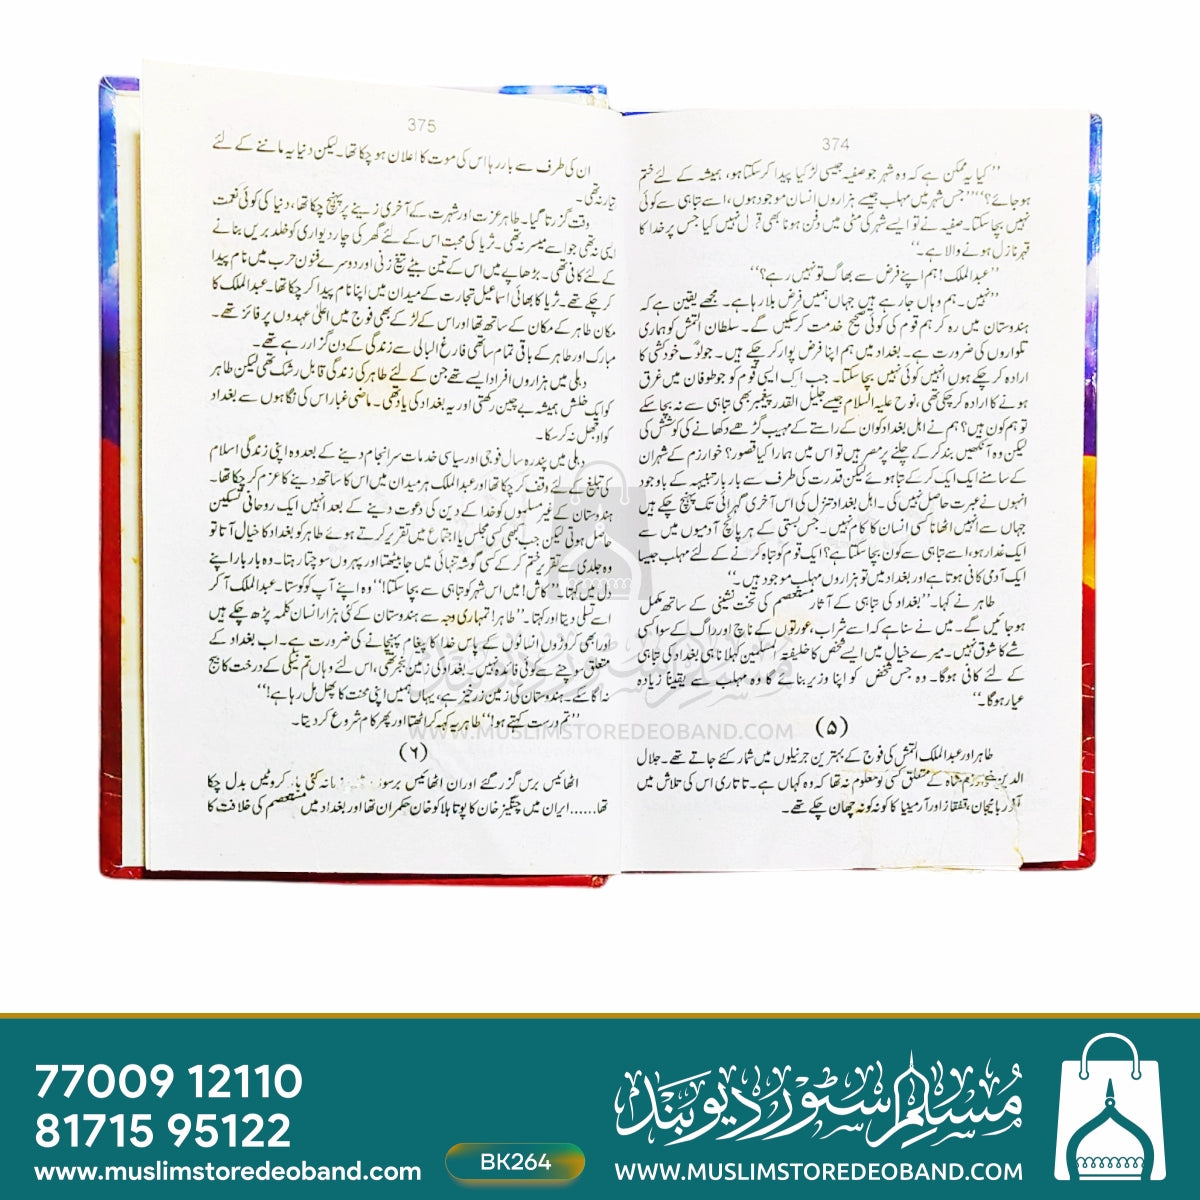 374
’’کیا یہ ممکن ہے کہ وہ شہر جو صفیہ جیسی لڑکیا پیدا کر سکتا ہو، ہمیشہ کے لئے ختم
ہو جائے؟‘‘ ’’جس شہر میں مہلب جیسے ہزاروں انسان موجود ہوں، اسے تباہی سے کوئی
نہیں بچا سکتا۔ صفیہ نے تو ایسے شہر کی مٹی میں دفن ہونا بھی قبول نہیں کیا جس پر خدا کا
قہر نازل ہونے والا ہے۔‘‘
’’عبدالملک! ہم اپنے فرض سے بھاگ تو نہیں رہے؟‘‘
’’نہیں۔ ہم وہاں جا رہے ہیں جہاں ہمیں فرض بلا رہا ہے۔ مجھے یقین ہے کہ
ہندوستان میں رہ کر ہم قوم کی کوئی صحیح خدمت کر سکیں گے۔ سلطان التمش کو ہماری
تلواروں کی ضرورت ہے۔ بغداد میں ہم اپنا فرض پوار کر چکے ہیں۔ جو لوگ خودکشی کا
ارادہ کر چکے ہوں انہیں کوئی نہیں بچا سکتا۔ جب اک ایسی قوم کو جو طوفان میں غرق
ہونے کا ارادہ کر چکی تھی، نوح علیہ السلام جیسے جلیل القدر پیغمبر بھی تباہی سے نہ بچا سکے
تو ہم کون ہیں؟ ہم نے اہل بغداد کو ان کے راستے کے مہیب گڑھے دکھانے کی کوشش کی
لیکن وہ آنکھیں بند کر کے چلنے پر مصر ہیں تو اس میں ہمارا کیا قصور؟ خوارزم کے شہران
کے سامنے ایک ایک کر کے تباہ ہوئے لیکن قدرت کی طرف سے بار بار تنبیہہ کے باوجود
انہوں نے عبرت حاصل نہیں کی۔ اہل بغداد تنزل کی اس آخری گہرائی تک پہنچ چکے ہیں
جہاں سے انہیں اٹھانا کسی انسان کا کام نہیں۔ جس بستی کے ہر پانچ آدمیوں میں سے
ایک غدار ہو، اسے تباہی سے کون بچا سکتا ہے؟ ایک قوم کو تباہ کرنے کے لئے مہلب جیسا
ایک آدمی کافی ہوتا ہے اور بغداد میں تو ہزاروں مہلب موجود ہیں۔‘‘
طاہر نے کہا۔ ’’بغداد کی تباہی کے آثار مستعصم کی تخت نشینی کے ساتھ مکمل
ہو جائیں گے۔ میں نے سنا ہے کہ اسے شراب، عورتوں کے ناچ اور راگ کے سوا کسی
شے کا شوق نہیں۔ میرے خیال میں ایسے شخص کا خلیفۃ المسلمین کہلانا ہی بغداد کی تباہی
کے لئے کافی ہوگا۔ وہ جس شخص کو اپنا وزیر بنائے گا وہ مہلب سے یقیناً زیادہ
عیار ہوگا۔‘‘
(۵)
طاہر اور عبدالملک التمش کی فوج کے بہترین جرنیلوں میں شمار کئے جاتے تھے۔ جلال
الدین خوارزم شاہ کے متعلق کسی کو معلوم نہ تھا کہ وہ کہاں ہے۔ تاتاری اس کی تلاش میں
آذربائیجان، قفقاز اور آرمینیا کا کونہ کونہ چھان چکے تھے۔
375
ان کی طرف سے بار رہا اس کی موت کا اعلان ہو چکا تھا۔ لیکن دنیا یہ ماننے کے لئے
تیار نہ تھی۔
وقت گزرتا گیا۔ طاہر عزت اور شہرت کے آخری زینے پر پہنچ چکا تھا، دنیا کی کوئی نعمت
ایسی نہ تھی جو اسے میسر نہ تھی۔ ثریا کی محبت اس کے لئے گھر کی چار دیواری کو خلد بریں بنانے
کے لئے کافی تھی۔ بڑھاپے میں اس کے تین بیٹے تیغ زنی اور دوسرے فنون حرب میں نام پیدا
کر چکے تھے۔ ثریا کا بھائی اسماعیل تجارت کے میدان میں اپنا نام پیدا کر چکا تھا۔ عبدالملک کا
مکان طاہر کے مکان کے ساتھ تھا اور اس کے لڑکے بھی فوج میں اعلیٰ عہدوں پر فائز تھے۔
مبارک اور طاہر کے باقی تمام ساتھی فارغ البالی سے زندگی کے دن گزار رہے تھے۔
دہلی میں ہزاروں افراد ایسے تھے جن کے لئے طاہر کی زندگی قابل رشک تھی لیکن طاہر
کو ایک خلش ہمیشہ بے چین رکھتی اور یہ بغداد کی یاد تھی۔ ماضی غبار اس کی نگاہوں سے بغداد
کو اوجھل نہ کر سکا۔
دہلی میں پندرہ سال فوجی اور سیاسی خدمات سرانجام دینے کے بعد وہ اپنی زندگی اسلام
کی تبلیغ کے لئے وقف کر چکا تھا اور عبدالملک ہر میدان میں اس کا ساتھ دینے کا عزم کر چکا تھا۔
ہندوستان کے غیر مسلموں کو خدا کے دین کی دعوت دینے کے بعد انہیں ایک روحانی تسکین
حاصل ہوتی لیکن جب بھی کسی مجلس یا اجتماع میں تقریر کرتے ہوئے طاہر کو بغداد کا خیال آتا تو
وہ جلدی سے تقریر ختم کر کے کسی گوشہ تنہائی میں جا بیٹھتا اور پہروں سوچتا رہتا۔ وہ بار بار اپنے
دل میں کہتا۔ ’’کاش! میں اس شہر کو تباہی سے بچا سکتا!‘‘ وہ اپنے آپ کو کوستا۔ عبدالملک آ کر
اسے تسلی دیتا اور کہتا۔ ’’طاہر! تمہاری وجہ سے ہندوستان کے کئی ہزار انسان کلمہ پڑھ چکے ہیں
اور ابھی کروڑوں انسانوں کے پاس خدا کا پیغام پہنچانے کی ضرورت ہے۔ اب بغداد کے
متعلق سوچنے سے کوئی فائدہ نہیں۔ بغداد کی زمین بنجر تھی، اس لئے وہاں تم نیکی کے درخت کا بیج
نہ اگا سکے۔ ہندوستان کی زمین زرخیز ہے، یہاں ہمیں اپنی محنت کا پھل مل رہا ہے!‘‘
’’تم درست کہتے ہو!‘‘ طاہر یہ کہہ کر اٹھتا اور پھر کام شروع کر دیتا۔
(۶)
اٹھائیس برس گزر گئے اور ان اٹھائیس برسوں میں زمانہ کئی بار کروٹیں بدل چکا
تھا......ایران میں چنگیز خان کا پوتا ہلاکو خان حکمران تھا اور بغداد میں مستعصم کی خلافت کا
مسلم سٹور دیوبند
WWW.MUSLIMSTOREDEOBAND.COM
77009 12110
81715 95122
www.muslimstoredeoband.com
BK264
مسلم سٹور دیوبند
WWW.MUSLIMSTOREDEOBAND.COM